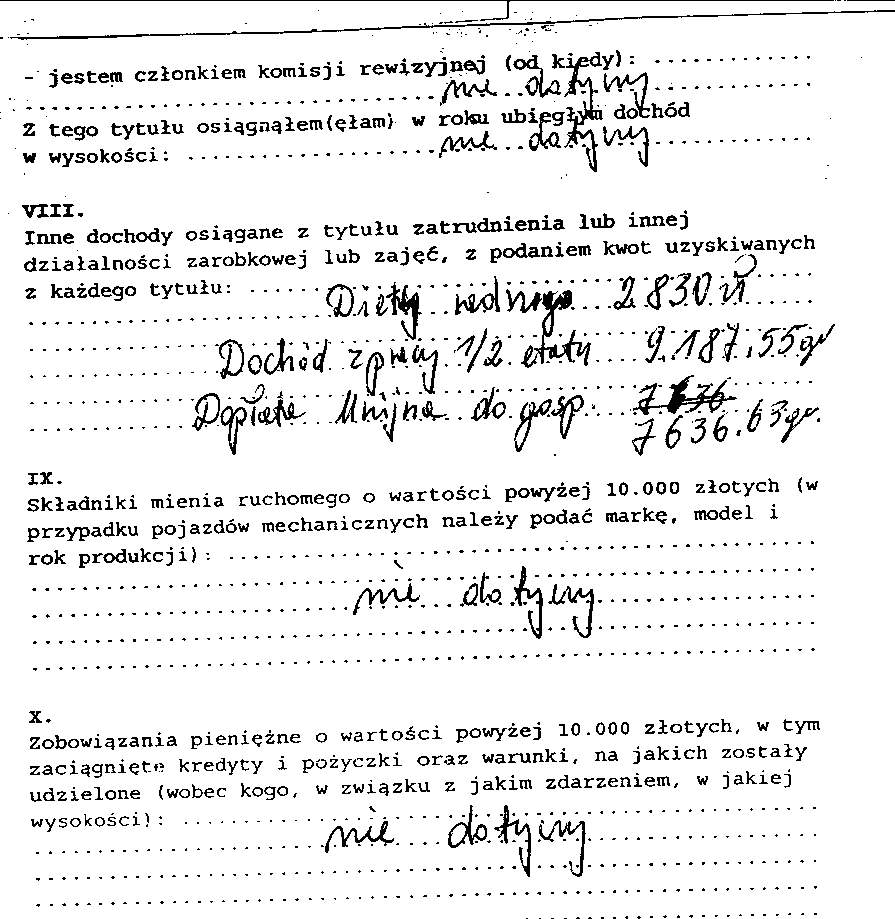 - jestem członkiem komisji rewizyjnej (od kiedy): ..............
nie dotyczy
Z tego tytułu osiągnąłem(ęłam) w roku ubiegłym dochód
w wysokości: .................. nie dotyczy
VIII.
Inne dochody osiągane z tytułu zatrudnienia lub innej
działalności zarobkowej lub zajęć, z podaniem kwot uzyskiwanych
z każdego tytułu: ......
Diety radnego 2 830 zł
Dochód z pracy 1/2 etatu 9.187,55 gr
Dopłata Unijna do gosp. 7 636
7 636.63 gr.
IX.
Składniki mienia ruchomego o wartości powyżej 10.000 złotych (w
przypadku pojazdów mechanicznych należy podać markę, model i
rok produkcji): ..............
nie dotyczy
X.
Zobowiązania pieniężne o wartości powyżej 10.000 złotych, w tym
zaciągnięte kredyty i pożyczki oraz warunki, na jakich zostały
udzielone (wobec kogo, w związku z jakim zdarzeniem, w jakiej
wysokości): ..............
nie dotyczy